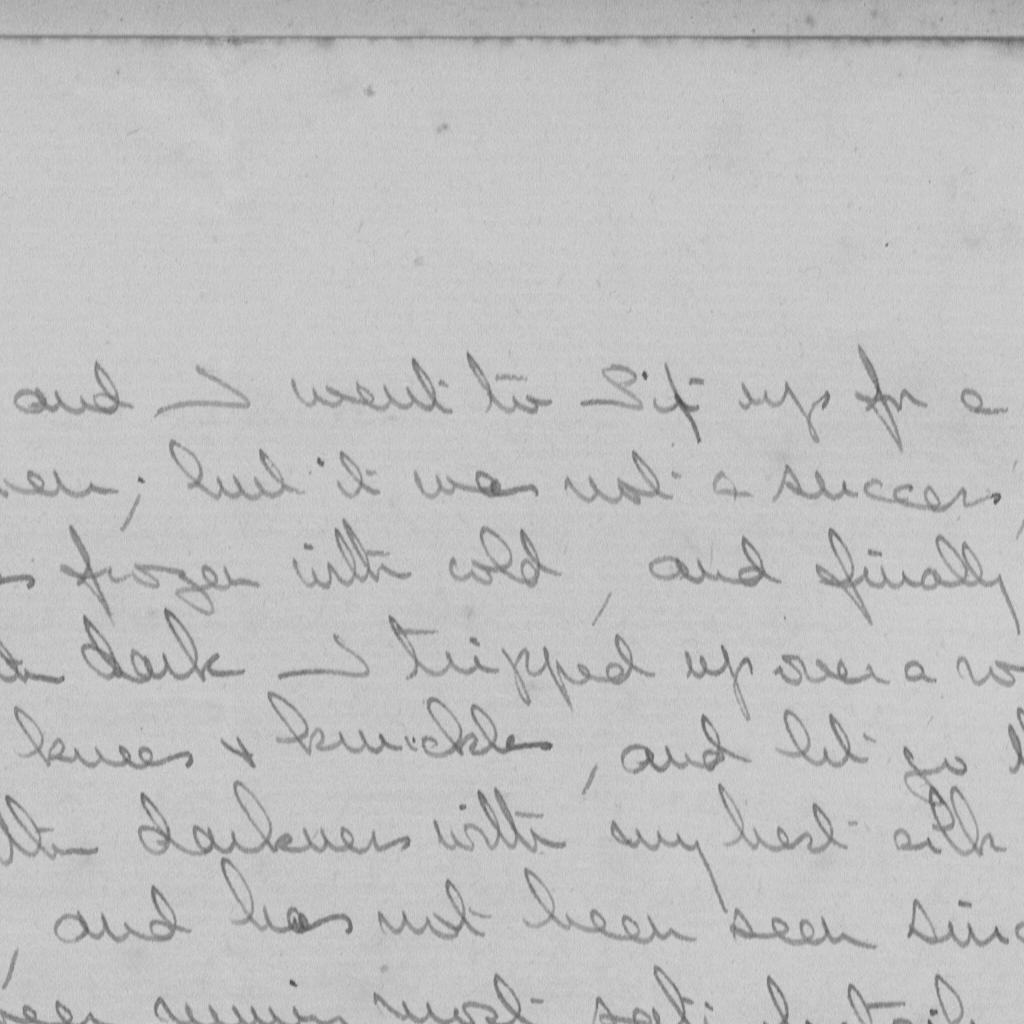 and I went to Sift up for a
but it was not a success,
frozen with cold, and finally
dark I tripped up over a
knees & knuckles, and let go
the darkness with my best silk
, and has not been seen
most